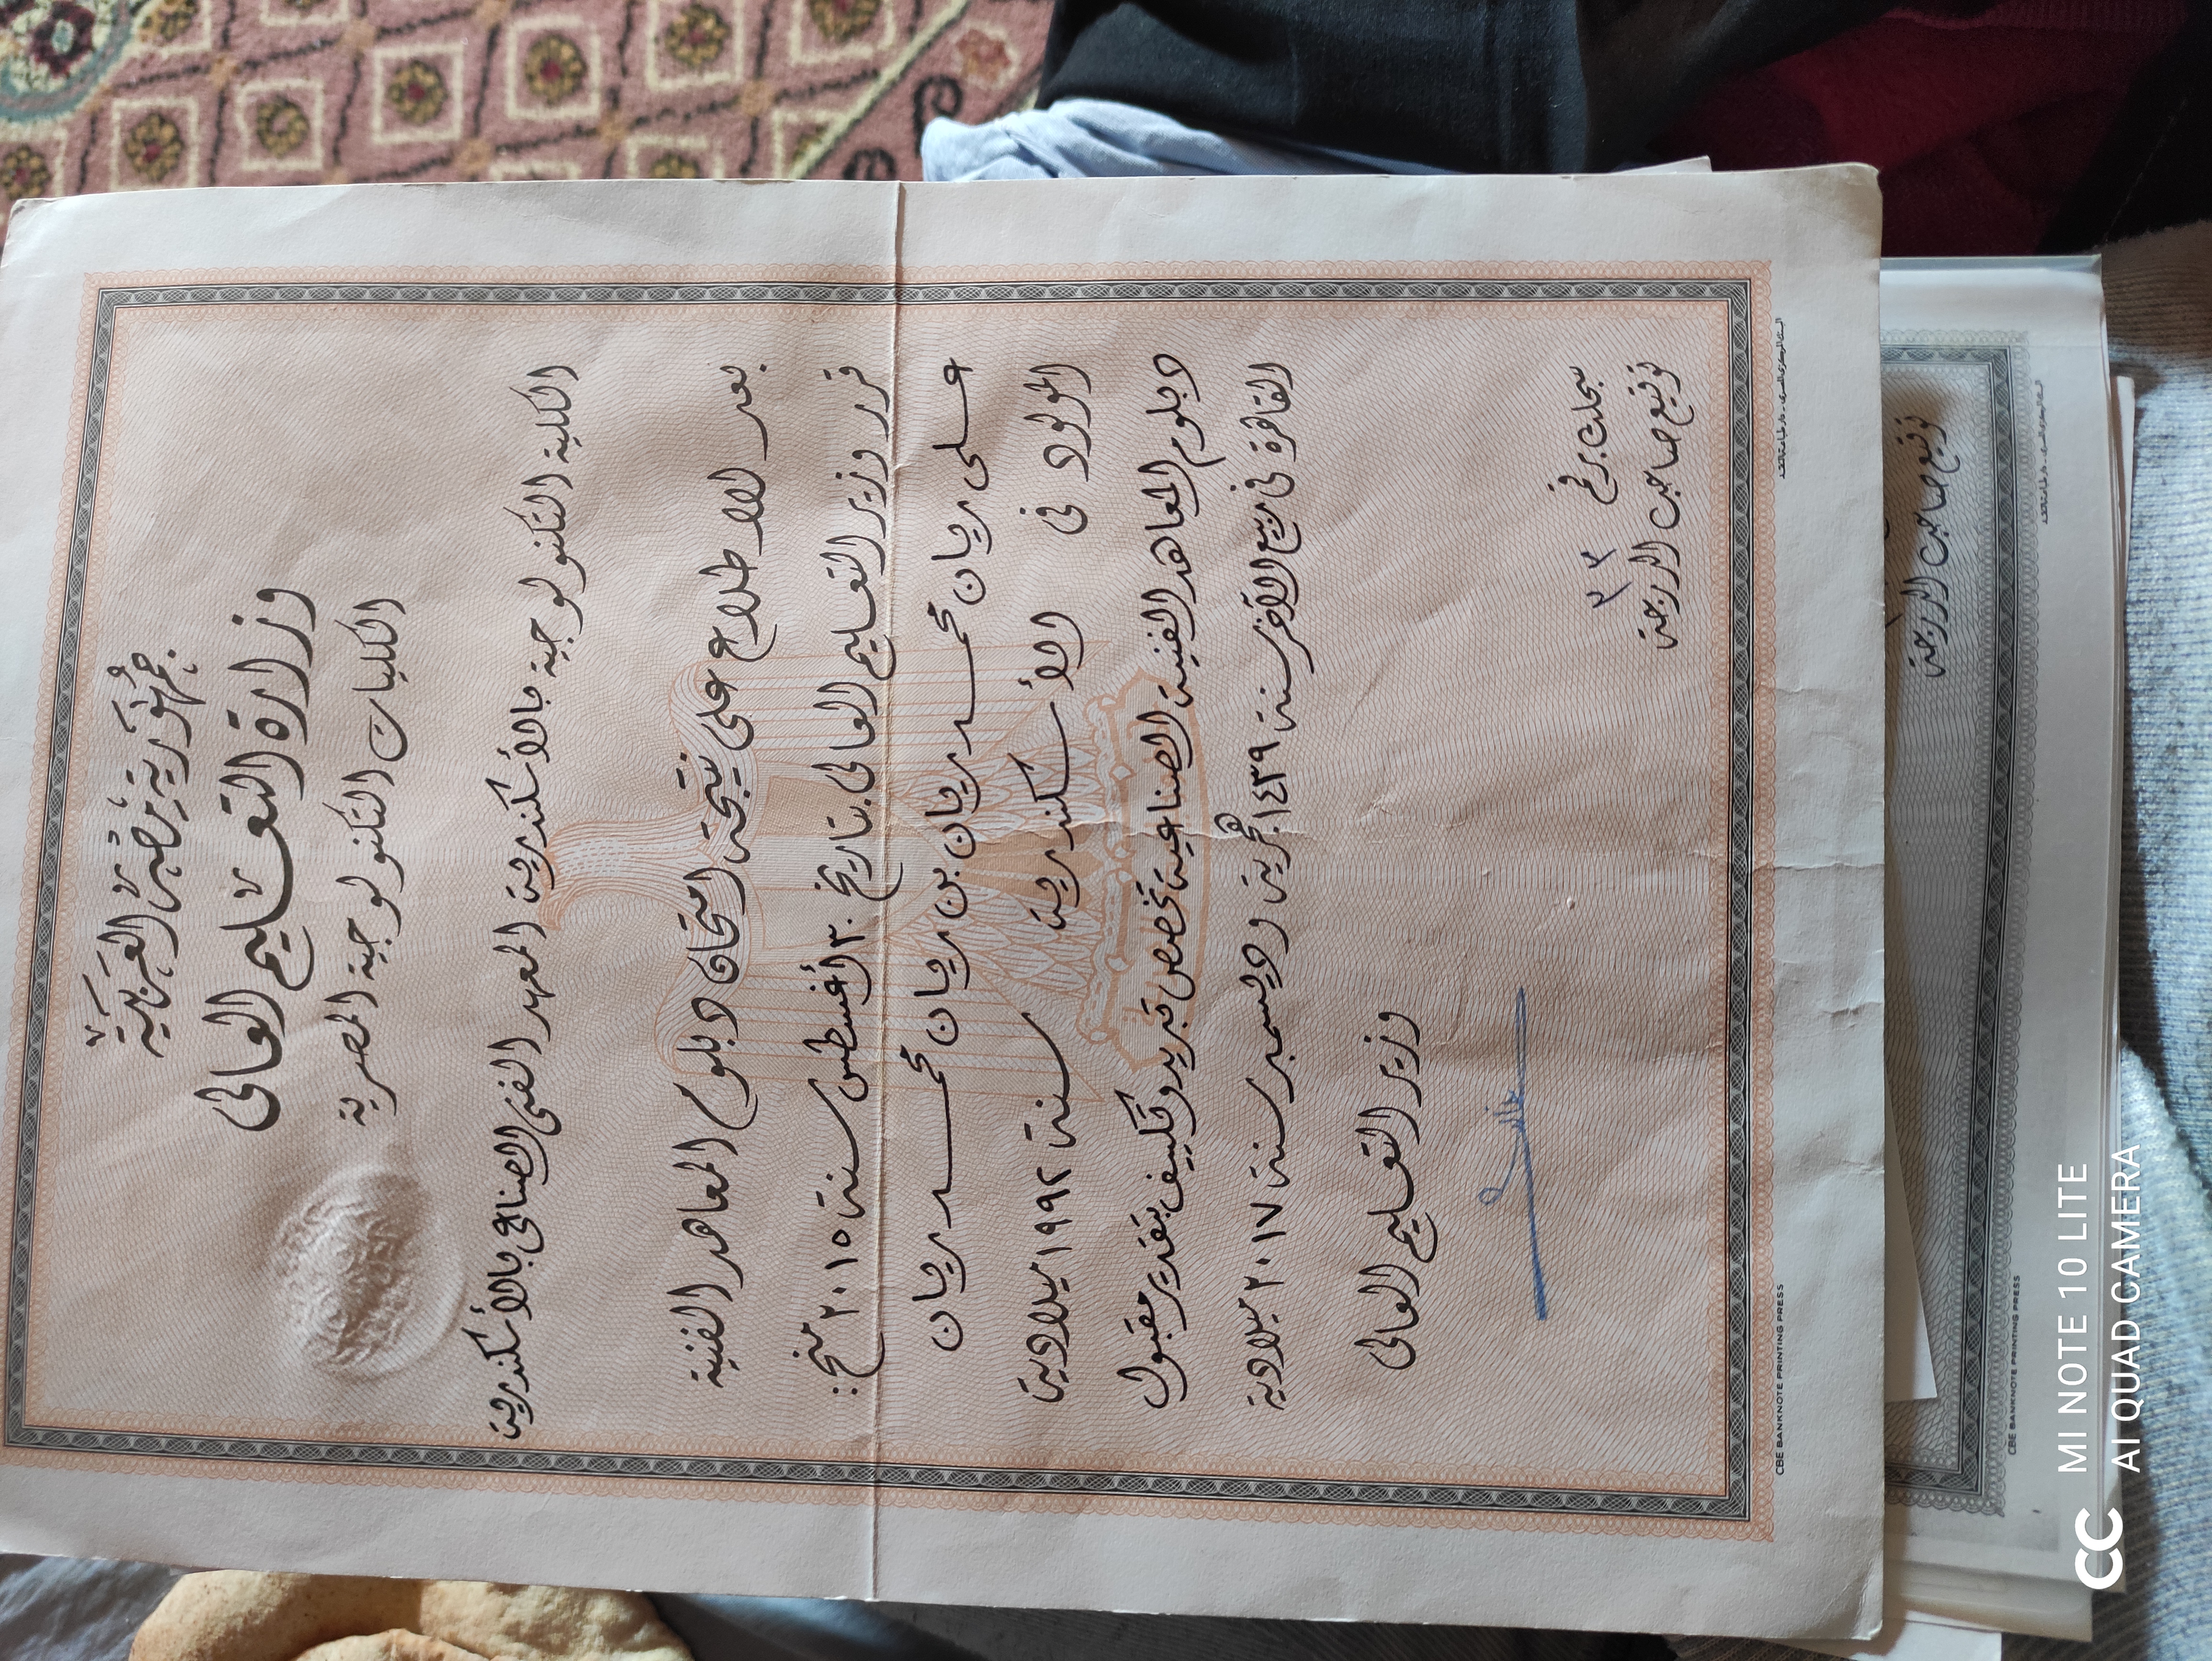 جمهورية مصر العربية
وزارة التعليم العالى
الكليات التكنولوجية المصرية
الكلية التكنولوجية بالأسكندرية المعهد الفنى الصناعى بالأسكندرية
بعد الاطلاع على نتيجة امتحان دبلوم المعاهد الفنية
قرر وزير التعليم العالى بتاريخ ٣٠ أغسطس سنة ٢٠١٥ منح :
على ريان محمد ريان بن ريان محمد ريان
المولود فى الأسكندرية سنة ١٩٩٢ ميلادية
دبلوم المعاهد الفنية الصناعية تخصص تبريد وتكييف بتقدير مقبول
القاهرة فى ربيع الآخر سنة ١٤٣٩ هجرية وديسمبر سنة ٢٠١٧ ميلادية
وزير التعليم العالى
سجلت برقم
توقيع صاحب الدرجة
CBE BANKNOTE PRINTING PRESS
توقيع صاحب الدرجة
CBE BANKNOTE PRINTING PRESS
MI NOTE 10 LITE
AI QUAD CAMERA